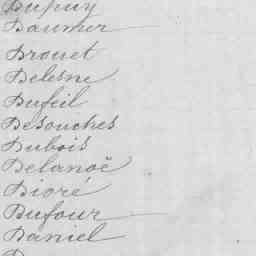 Dupuy
Daumer
Drouet
Delesne
Dufeil
Desouches
Dubois
Delanoë
Dioré
Dufour
Daniel